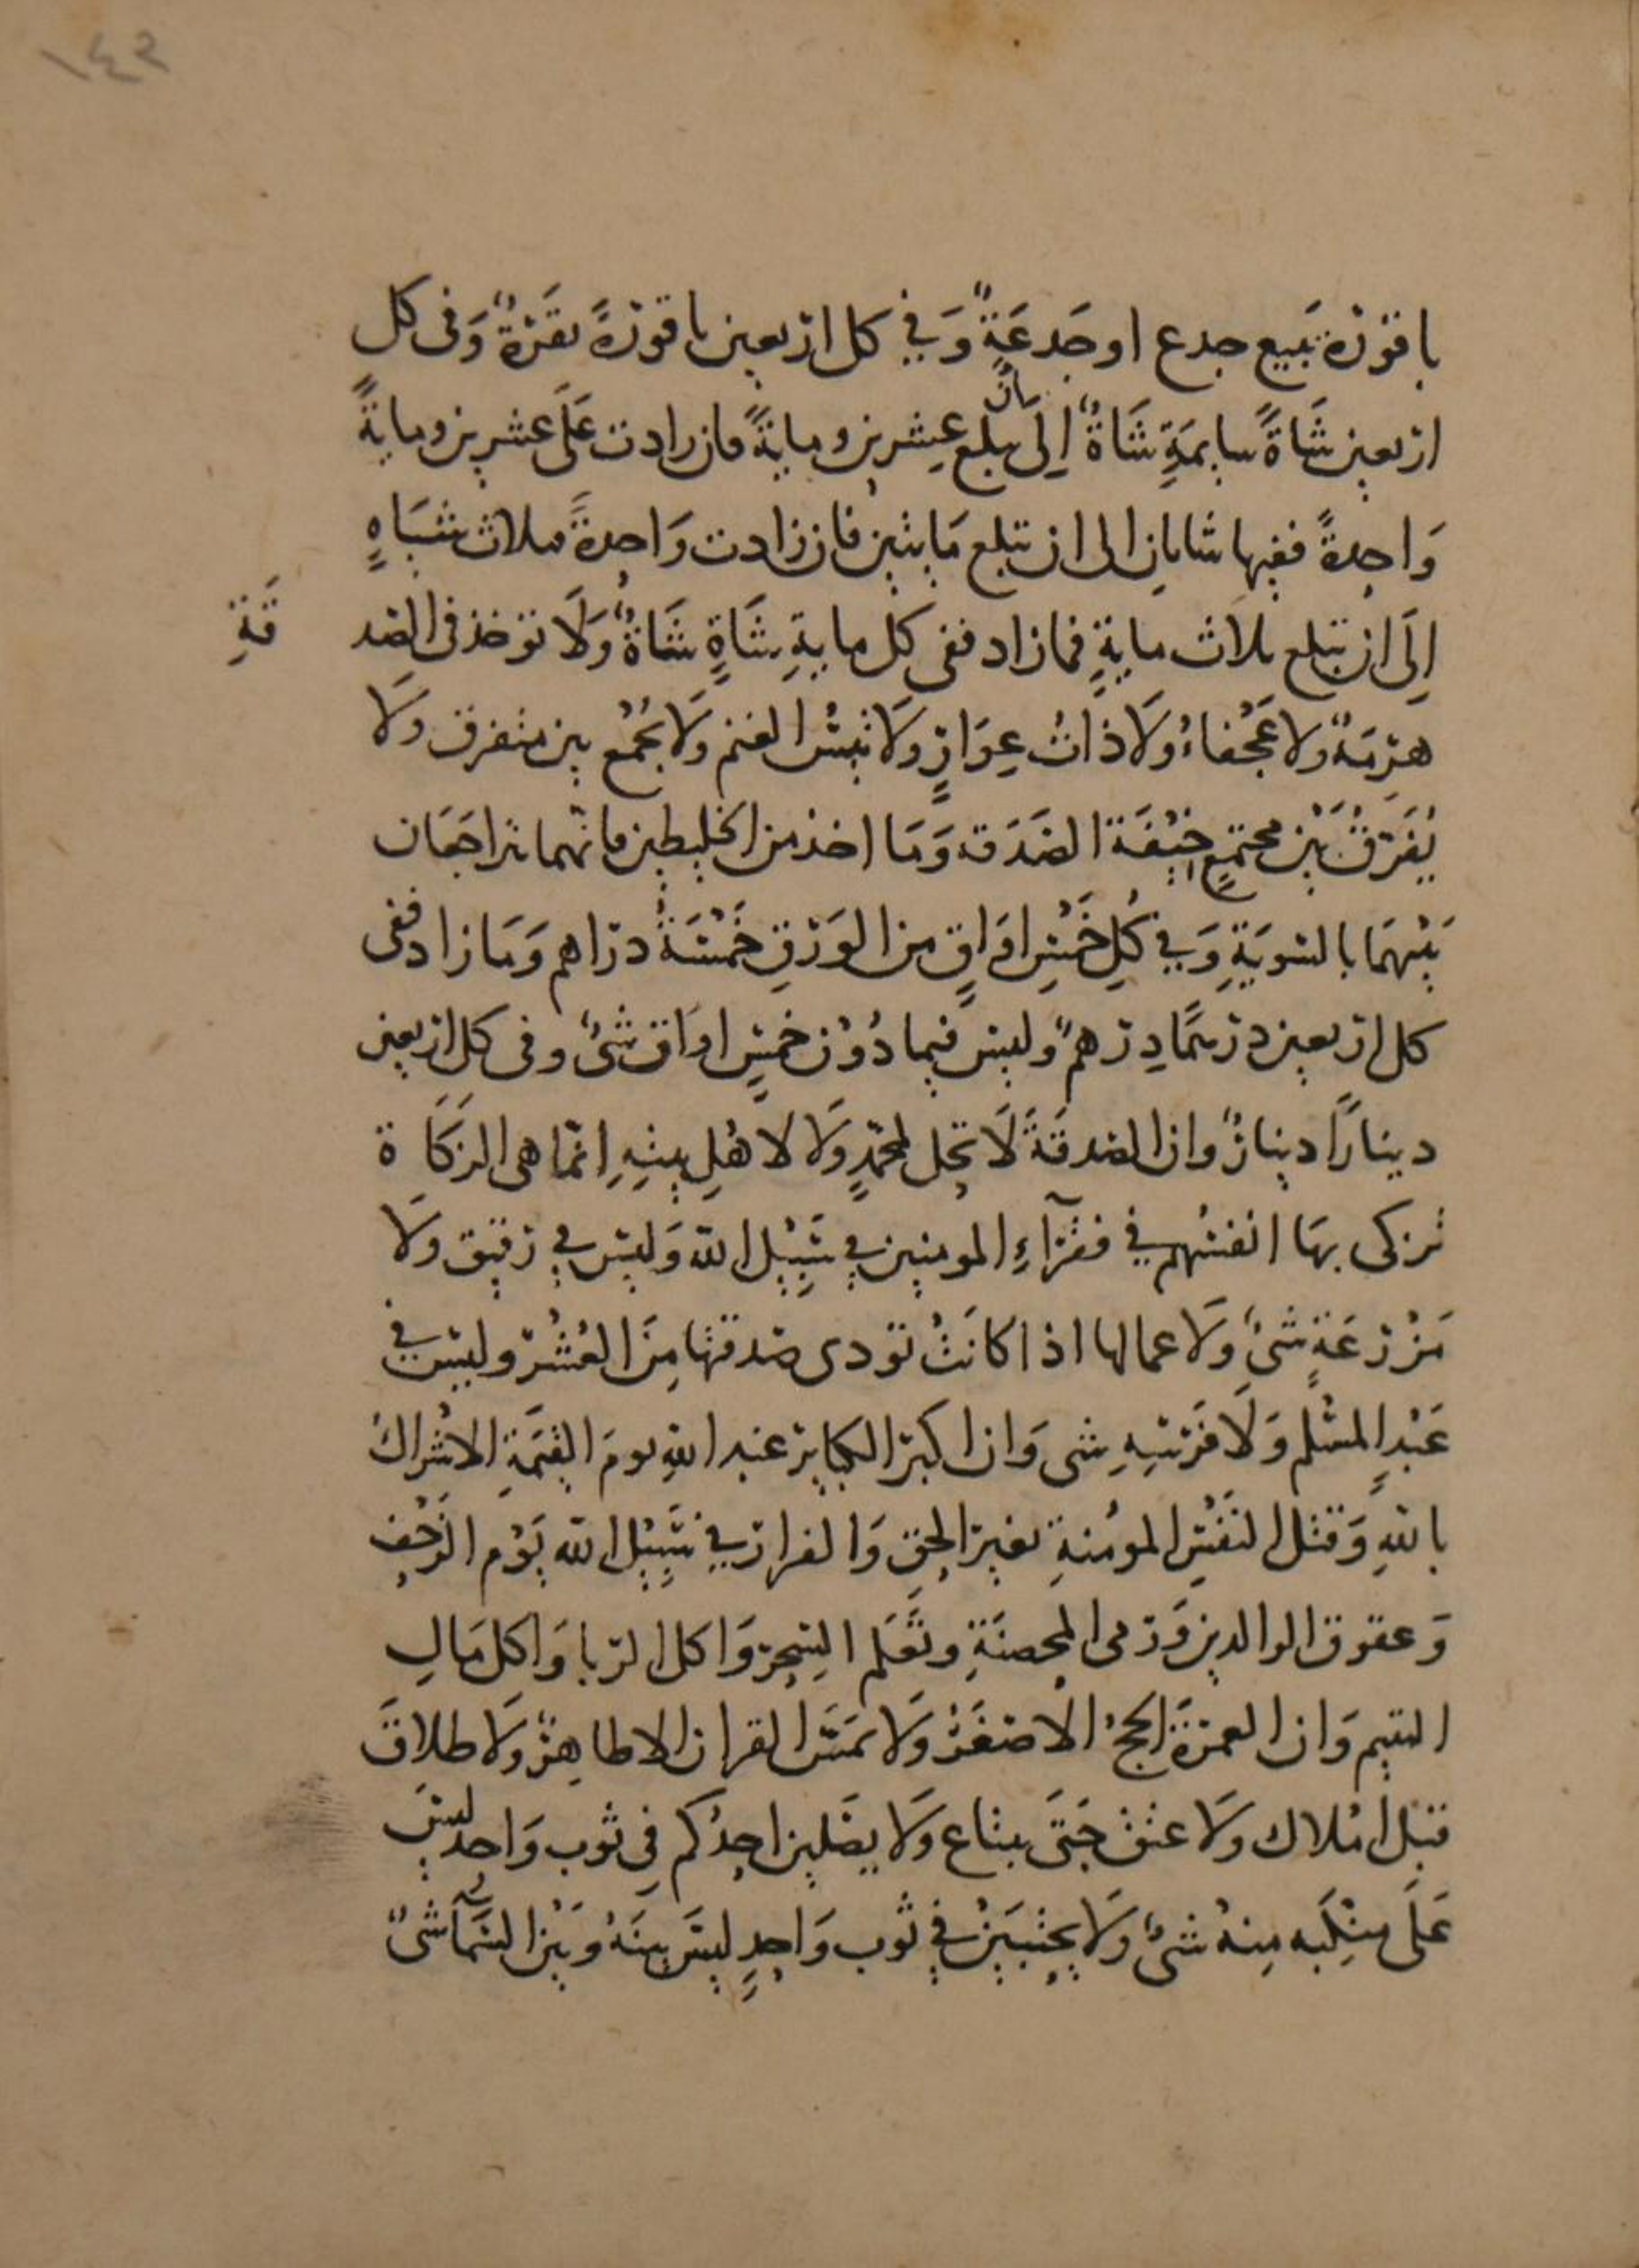 ١٤٢
باقورة تبيع جدع او جَدعَةٌ وَفي كل اربعين باقورةً بقَرَةٌ وَفى كل
اربعين شَاةً سايمَةٍ شَاةٌ اِلىَ ان تبلع عِشرين ومايةً فان زادت عَلَى عشرين ومايةً
وَاحِدةً ففيها شاتانِ الى ان تبلع مَايتين فان زادت وَاحِدةً فثلاث شيَاهٍ
اِلَى ان تبلع ثلاث مايةٍ فما زاد ففى كل مايةِ شَاةٍ شَاةٌ وَلَا توخذ فى الصَد قَةِ
هَرِمَةٌ ولا عَجْفاءُ ولَا ذاتُ عِوَارٍ ولَا تيسُ الغنم ولَا يُجْمَعُ بين متفرق ولَا
يُفَرَّقُ بَيْن مجتمعٍ خِيْفَةَ الصَدَقه وَمَا اخذ من الخليطين فانّهما يتراجعَان
بَيْنهمَا بالسّويَةِ وَفي كُلِ خَمْسِ اوَاقٍ من الوَرَقِ خَمْسَةُ دراهم وَمَا زاد ففى
كل اربعين درهمًا دِرْهمٌ وليس فيما دُوْنَ خمسِ اوَاق شىٌ وفى كل اربعين
دينارًا دينارٌ وان الصدقَةً لَا تحِل لمحمّدٍ وَلا لا هْلِ بيتِهِ انمّا هى الزكَا ة
تزكى بهَا انفسُهم في فقرآءِ المومنِين في سَبِيْلِ الله وَليسَ في رقيق ولَا
مَزْرعَةٍ شىٌ ولَا عمالها اذا كانَتْ تودى صدقتها مِنَ العُشْر وليس في
عَبْدِ المسْلم وَلَا فَرَسِهِ شى وَان اكبر الكبايِر عند اللهِ يومَ القيمَةِ الاشْراكُ
باللهِ وَقتل النفْسِ المومُنةِ بغير الحقِ وَالفرار في سَبِيْلِ الله يَوْم الزحْفِ
وَعقوق الوالدين وَرمى المحصنَةِ وتعَلم السِحر وَاكل الربا وَاكل مَالِ
اليتيم وَان العمرَةَ الحجُ الاصغَرُ ولَا يَمسَّ القران الا طاهِرٌ ولَا طلاقَ
قبْل امْلاك ولَا عتق حَتَى يبتاع ولَا يصَلين احدُكم في ثوب وَاحد ليسَ
عَلَى منْكِبه مِنهُ شىٌ ولَا يحتبيَنْ في ثوب وَاحِدٍ ليسَ بينَهُ وبَيْن السَّمآءِ شىٌ